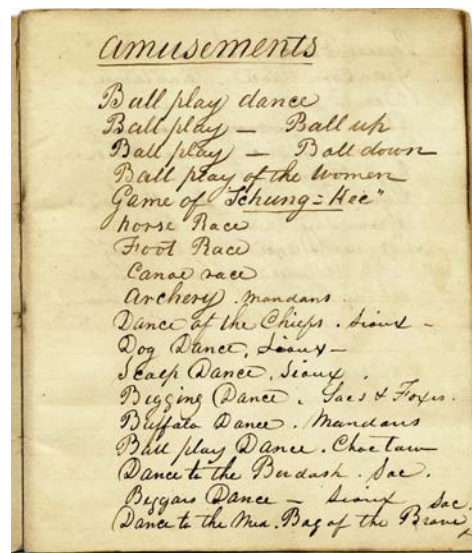 amusements
Ball play dance
Ball play – Ball up
Ball play – Ball down
Ball play of the women
Game of "Tchung=Kee"
horse Race
Foot Race
Canoe race
Archery. Mandans.
Dance of the Chiefs. Sioux –
Dog Dance, Sioux –
Scalp Dance. Sioux.
Begging Dance. Sacs & Foxes.
Buffalo Dance. Mandans
Ball play Dance. Choctaw
Dance to the Berdash. Sac.
Beggars Dance – Sioux
Dance to the Med. Bag of the Brave, Sac.